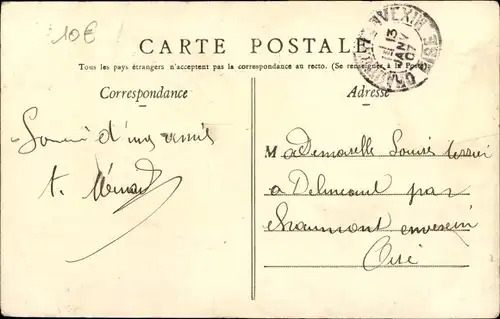 10€
CARTE POSTALE
Tous les pays étrangers n'acceptent pas la correspondance au recto. (Se renseigner à la Poste).
Correspondance
Adresse
13
JANV
07
OISE
Souvenir d'une amie
Mademoiselle Louise
a Delincourt par
chaumont envexin
Oise